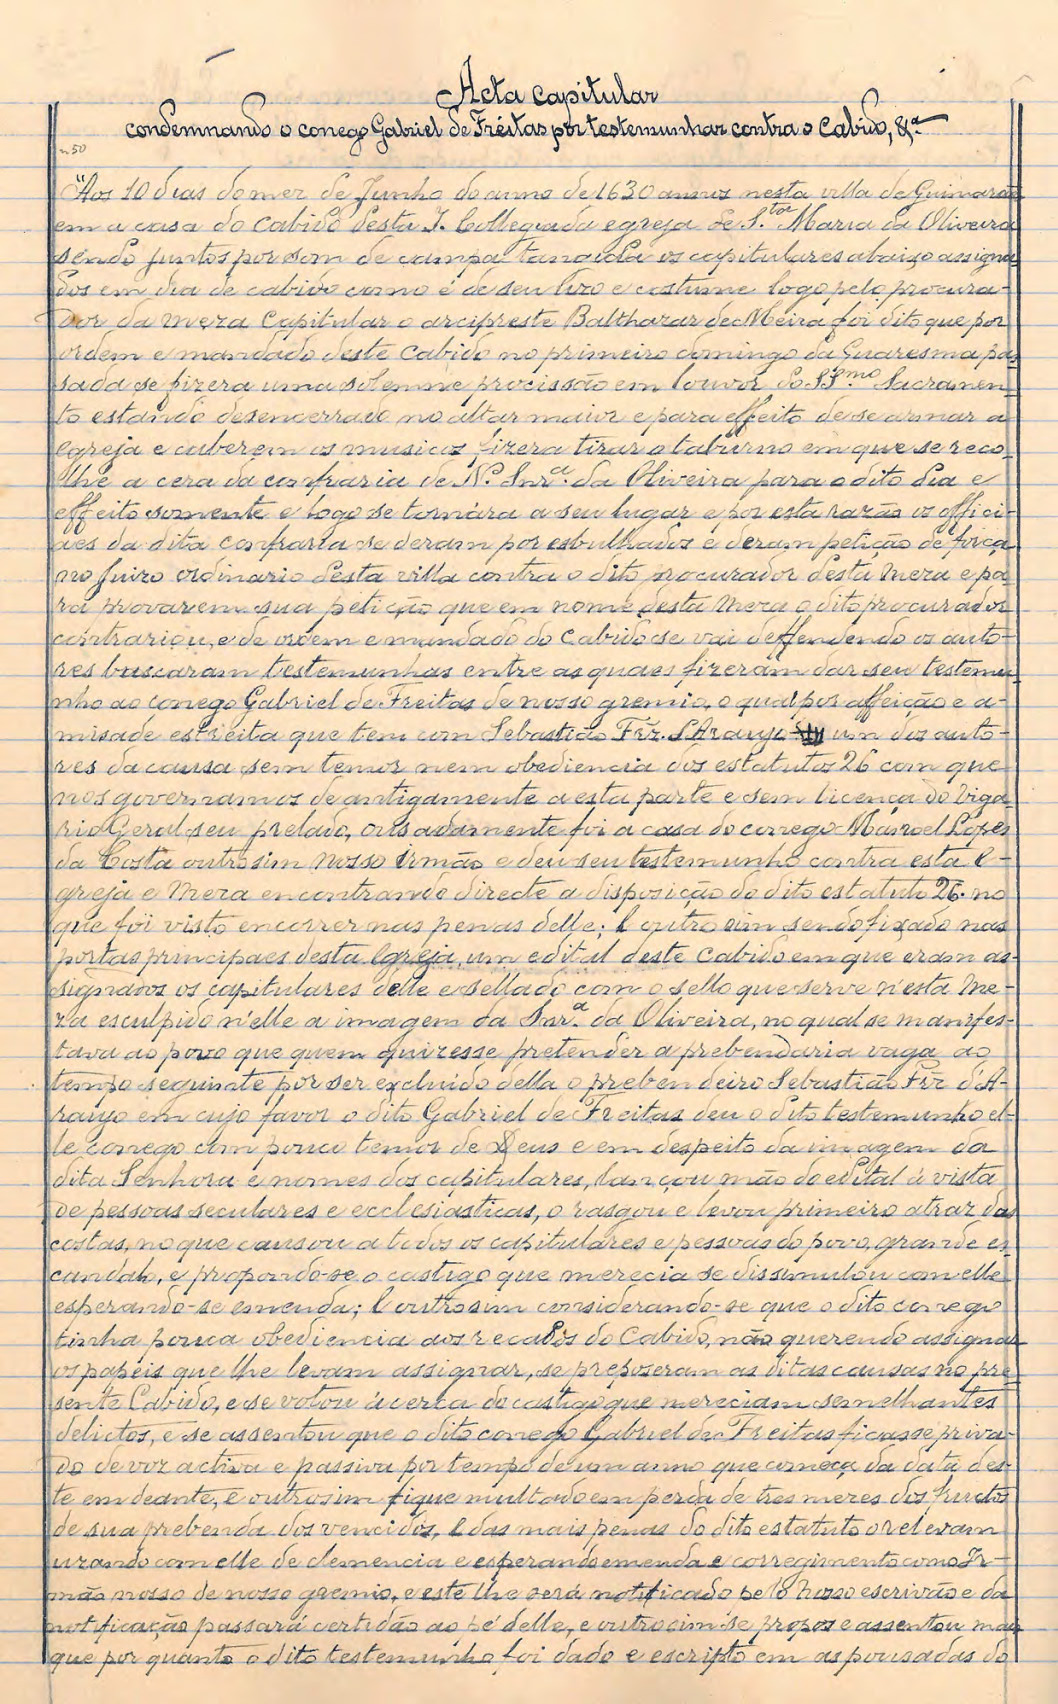 Acta capitular
condemnando o conego Gabriel de Freitas por testemunhar contra o Cabido, &ª
nº 50
"Aos 10 dias do mez de Junho do anno de 1630 annos nesta villa de Guimarães
em a casa do Cabido desta I. Collegiada egreja de S.ta Maria da Oliveira
sendo juntos por som de campa tangida os capitulares abaixo assigna-
dos em dia de cabido como é de seu uzo e costume logo pelo procura-
dor da Meza Capitular o arcipreste Balthazar de Meira foi dito que por
ordem e mandado deste Cabido no primeiro domingo da Quaresma pas-
sada se fizera uma solemne procissão em louvor do SS.mo Sacramen-
to estando desencerrado no altar maior e para effeito de se armar a
Egreja e caberem os musicos fizera tirar o taburno em que se reco-
lhe a cera da confraria de N.ª Snr.ª da Oliveira para o dito dia e
effeito somente e logo se tornára a seu lugar e por esta razão os offici-
aes da dita confraria se deram por esbulhados e deram petição de força
no Juizo ordinario desta villa contra o dito procurador desta Meza e pa-
ra provarem sua petição que em nome desta Meza o dito procurador
contrariou, e de ordem e mandado do Cabido se vai deffendendo os auto-
res buscaram testemunhas entre as quaes fizeram dar seu testemu-
nho ao conego Gabriel de Freitas de nosso gremio, o qual por affeição e a-
misade estreita que tem com Sebastião Frz. d'Araujo um dos auto-
res da causa sem temor nem obediencia dos estatutos 26 com que
nos governamos de antigamente a esta parte e sem licença do Viga-
rio Geral seu prelado, ousadamente foi a casa do conego Manoel Lopes
da Costa outrosim nosso irmão e deu seu testemunho contra esta E-
greja e Meza encontrando directe a disposição do dito estatuto 26. no
que foi visto encorrer nas penas delle; E outro sim sendo fixado nas
portas principaes desta Egreja, um edital deste Cabido em que eram as-
signados os capitulares delle e sellado com o sello que serve n'esta Me-
za esculpido n'elle a imagem da Snr.ª da Oliveira, no qual se manifes-
tava ao povo que quem quizesse pretender a prebendaria vaga ao
tempo seguinte por ser excluido della o prebendeiro Sebastião Frz d'A-
raujo em cujo favor o dito Gabriel de Freitas deu o dito testemunho el-
le conego com pouco temor de Deus e em despeito da imagem da
dita Senhora e nomes dos capitulares, lançou mão do edital á vista
de pessoas seculares e ecclesiasticas, o rasgou e levou primeiro atraz das
costas, no que causou a todos os capitulares e pessoas do povo, grande es-
candalo, e propondo-se o castigo que merecia se dissimulou com elle
esperando-se emenda; E outrosim considerando-se que o dito conego
tinha pouca obediencia aos recados do Cabido, não querendo assignar
os papeis que lhe levam assignar, se preposeram as ditas causas no pre-
sente Cabido, e se votou ácerca do castigo que mereciam semelhantes
delictos, e se assentou que o dito conego Gabriel de Freitas ficasse priva-
do de voz activa e passiva por tempo de um anno que começa da data des-
te em deante, e outrosim fique multado em perda de tres mezes dos fructos
de sua prebenda dos vencidos, e das mais penas do dito estatuto o relevam
uzando com elle de clemencia e esperando emenda e corregimento como Ir-
mão nosso de nosso gremio, e este lhe será notificado pelo nosso escrivão e da
notificação passará certidão ao pé delle, e outrosim se propoz e assentou mais
que por quanto o dito testemunho foi dado e escripto em as pousadas do